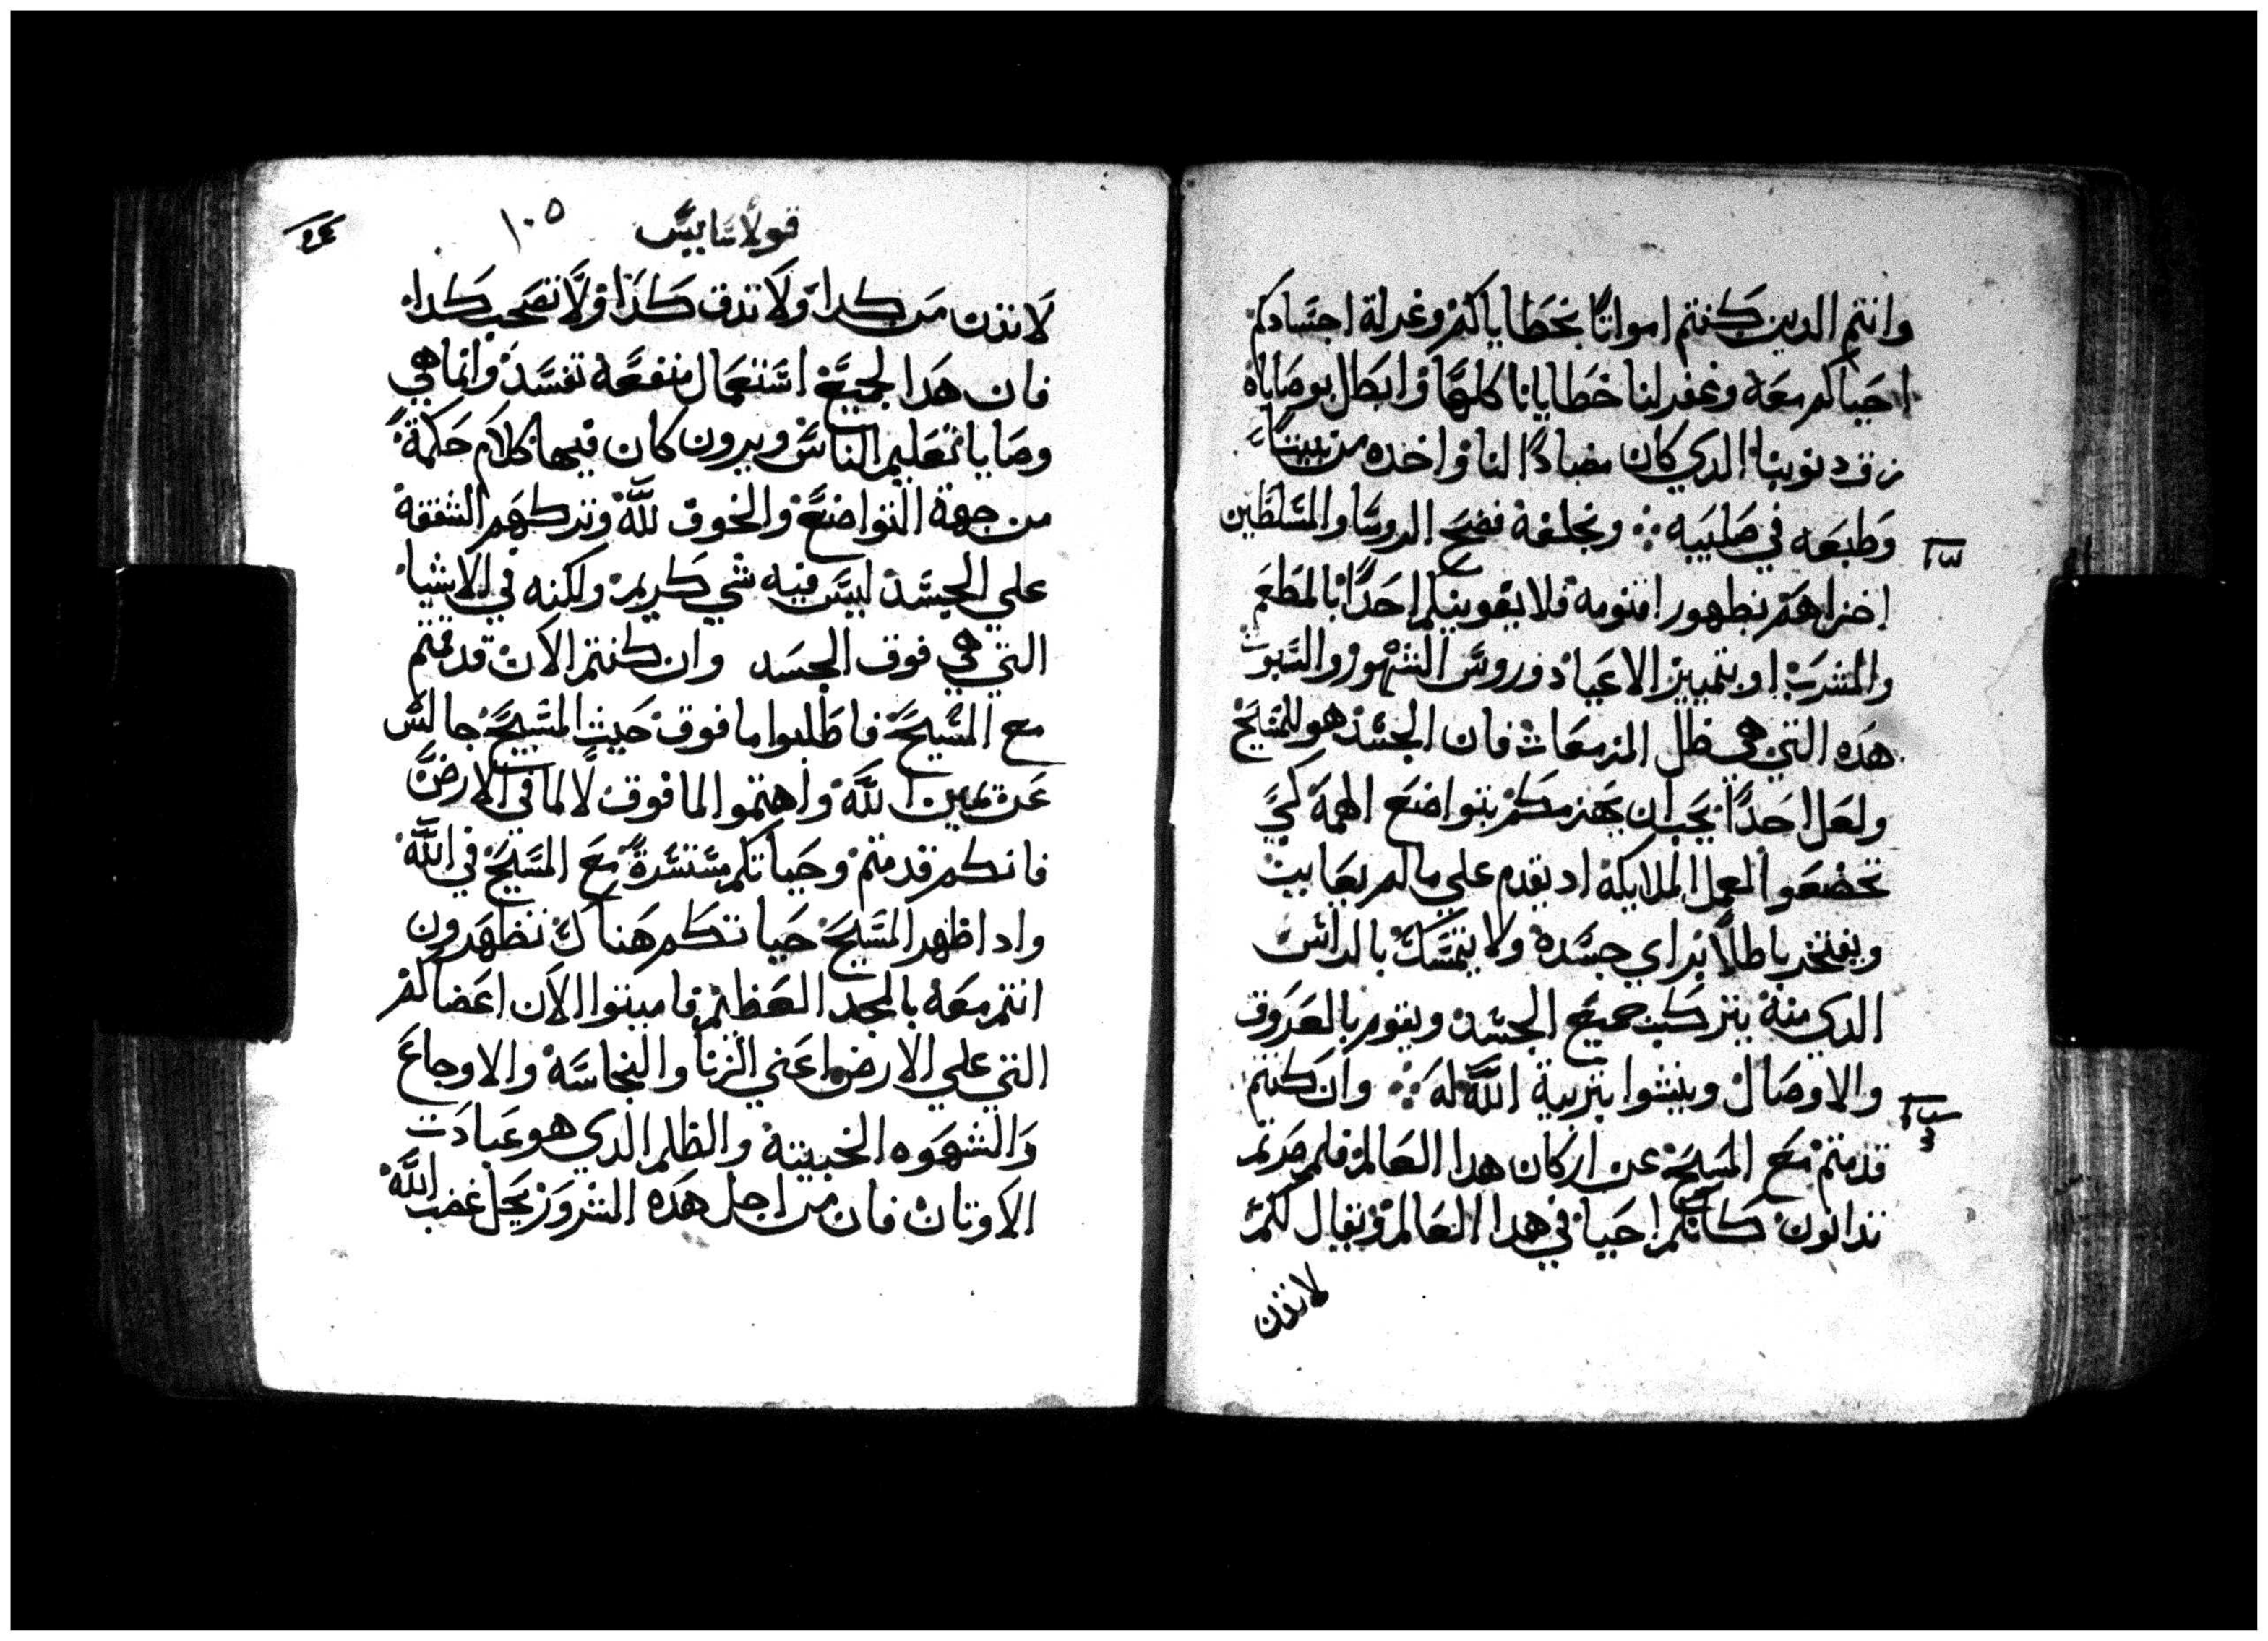 وانتم الدين كنتم امواتا بخطاياكم وغرلة اجسادكم
احياكم معه وغفر لنا خطايانا كلها وابطل بوصاياه
زق دنوبنا الدي كان مضادا لنا واخده من بيننا
وطبعه في صليبه ؞ وبخلعه فضح الروسا والمسلطين
اخزاهم بظهور اقنومه فلا يقوينكم احدا بالمطعم
والمشرب او بتمييز الاعياد وروس الشهور والسبوت
هده التي هي ظل المزمعات فان الجسد هو للمسيح
ولعل احدا يحب ان يهزمكم بتواضع الهمة لكي
تخضعوا لعمل الملايكة اد يقدم علي ما لم يعاين
ويفتخر باطلا براي جسده ولا يتمسك بالراس
الدي منه يتركب جميع الجسد ويقوم بالعروق
والاوصال وينشوا بتربية الله له ؞ وان كنتم
قد متم مع المسيح عن اركان هدا العالم فلم صرتم
تدانون كانكم احيا في هدا العالم ويقال لكم
لا تدن
قولاسايس
١٠٥
لا تدن من كدا ولا تدق كذا ولا تصحب كدا
فان هدا الجميع استعمال منفعة تفسد وانما هي
وصايا تعليم الناس ويرون كان فيها كلام حكمة
من جهة التواضع والخوف لله وتركهم الشفقة
علي الجسد ليس فيه شي كريم ولكنه في الاشيا
التي هي فوق الجسد وان كنتم الان قد قمتم
مع المسيح فاطلبوا ما فوق حيث المسيح جالس
عن يمين الله واهتموا لما فوق لا لما في الارض
فانكم قد متم وحياتكم مستترة مع المسيح في الله
وادا ظهر المسيح حياتكم هناك تظهرون
انتم معه بالمجد العظيم فاميتوا الان اعضاكم
التي علي الارض اعني الزنا والنجاسة والاوجاع
والشهوه الخبيتة والظلم الدي هو عبادت
الاوتان فان من اجل هده الشرور يحل غضب الله